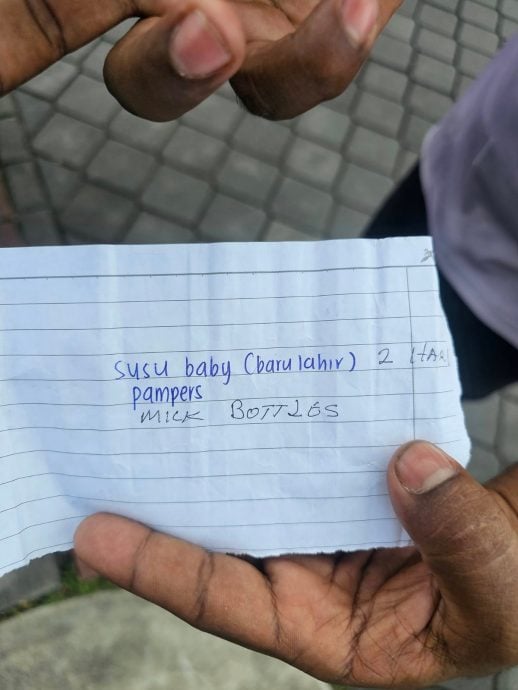 susu baby (baru lahir) 2 HARI
pampers
MILK BOTTLES